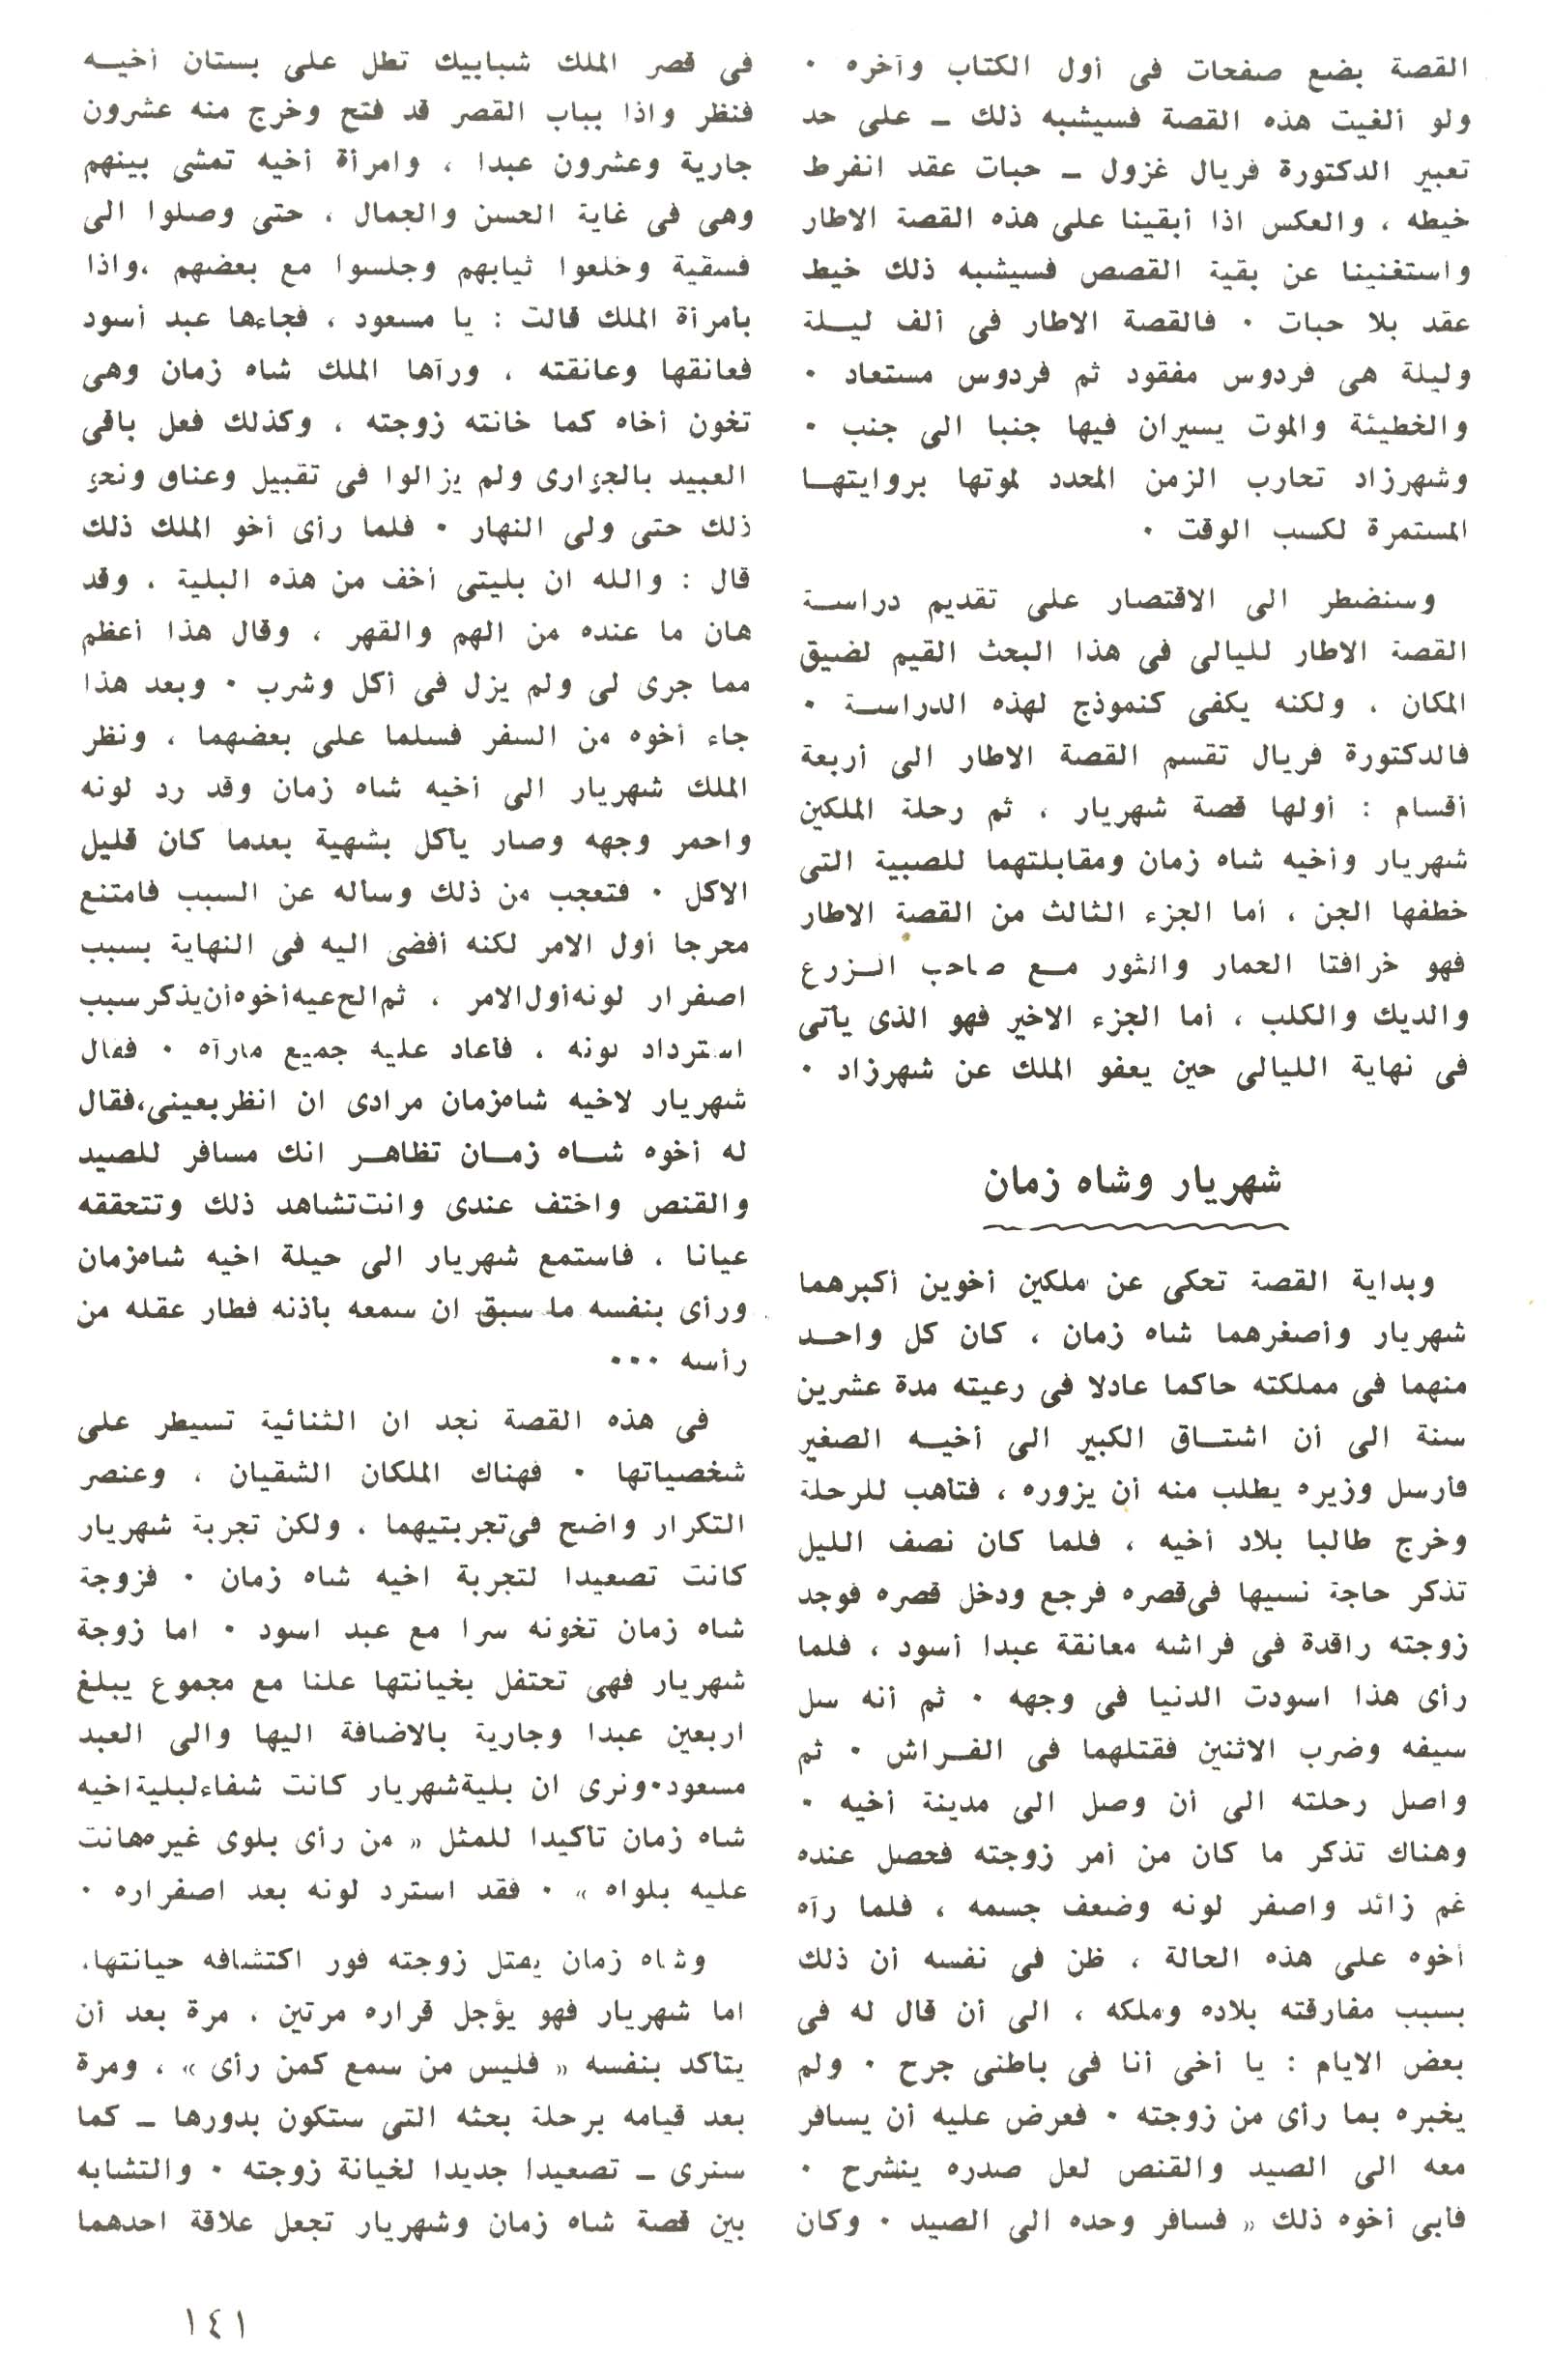 القصة بضع صفحات فى أول الكتاب وآخره ٠
ولو ألغيت هذه القصة فسيشبه ذلك ـ على حد
تعبير الدكتورة فريال غزول ـ حبات عقد انفرط
خيطه ، والعكس اذا أبقينا على هذه القصة الاطار
واستغنينا عن بقية القصص فسيشبه ذلك خيط
عقد بلا حبات ٠ فالقصة الاطار فى ألف ليلة
وليلة هى فردوس مفقود ثم فردوس مستعاد ٠
والخطيئة والموت يسيران فيها جنبا الى جنب ٠
وشهرزاد تحارب الزمن المحدد لموتها بروايتها
المستمرة لكسب الوقت ٠
وسنضطر الى الاقتصار على تقديم دراسة
القصة الاطار لليالى فى هذا البحث القيم لضيق
المكان ، ولكنه يكفى كنموذج لهذه الدراسة ٠
فالدكتورة فريال تقسم القصة الاطار الى أربعة
أقسام : أولها قصة شهريار ، ثم رحلة الملكين
شهريار وأخيه شاه زمان ومقابلتهما للصبية التى
خطفها الجن ، أما الجزء الثالث من القصة الاطار
فهو خرافتا الحمار والثور مع صاحب الزرع
والديك والكلب ، أما الجزء الاخير فهو الذى يأتى
فى نهاية الليالى حين يعفو الملك عن شهرزاد ٠
شهريار وشاه زمان
وبداية القصة تحكى عن ملكين أخوين أكبرهما
شهريار وأصغرهما شاه زمان ، كان كل واحد
منهما فى مملكته حاكما عادلا فى رعيته مدة عشرين
سنة الى أن اشتاق الكبير الى أخيه الصغير
فأرسل وزيره يطلب منه أن يزوره ، فتأهب للرحلة
وخرج طالبا بلاد أخيه ، فلما كان نصف الليل
تذكر حاجة نسيها فى قصره فرجع ودخل قصره فوجد
زوجته راقدة فى فراشه معانقة عبدا أسود ، فلما
رأى هذا اسودت الدنيا فى وجهه ٠ ثم أنه سل
سيفه وضرب الاثنين فقتلهما فى الفراش ٠ ثم
واصل رحلته الى أن وصل الى مدينة أخيه ٠
وهناك تذكر ما كان من أمر زوجته فحصل عنده
غم زائد واصفر لونه وضعف جسمه ، فلما رآه
أخوه على هذه الحالة ، ظن فى نفسه أن ذلك
بسبب مفارقته بلاده وملكه ، الى أن قال له فى
بعض الايام : يا أخى أنا فى باطنى جرح ٠ ولم
يخبره بما رأى من زوجته ٠ فعرض عليه أن يسافر
معه الى الصيد والقنص لعل صدره ينشرح ٠
فأبى أخوه ذلك « فسافر وحده الى الصيد ٠ وكان
فى قصر الملك شبابيك تطل على بستان أخيه
فنظر واذا بباب القصر قد فتح وخرج منه عشرون
جارية وعشرون عبدا ، وامرأة أخيه تمشى بينهم
وهى فى غاية الحسن والجمال ، حتى وصلوا الى
فسقية وخلعوا ثيابهم وجلسوا مع بعضهم ،واذا
بأمرأة الملك قالت : يا مسعود ، فجاءها عبد أسود
فعانقها وعانقته ، ورآها الملك شاه زمان وهى
تخون أخاه كما خانته زوجته ، وكذلك فعل باقى
العبيد بالجوارى ولم يزالوا فى تقبيل وعناق ونحو
ذلك حتى ولى النهار ٠ فلما رأى أخو الملك ذلك
قال : والله ان بليتى أخف من هذه البلية ، وقد
هان ما عنده من الهم والقهر ، وقال هذا أعظم
مما جرى لى ولم يزل فى أكل وشرب ٠ وبعد هذا
جاء أخوه من السفر فسلما على بعضهما ، ونظر
الملك شهريار الى أخيه شاه زمان وقد رد لونه
واحمر وجهه وصار يأكل بشهية بعدما كان قليل
الاكل ٠ فتعجب من ذلك وسأله عن السبب فامتنع
محرجا أول الامر لكنه أفضى اليه فى النهاية بسبب
اصفرار لونه أول الامر ، ثم الح عيه أخوه أن يذكر سبب
استرداد لونه ، فأعاد عليه جميع مارآه ٠ فقال
شهريار لاخيه شاه زمان مرادى ان انظر بعينى،فقال
له أخوه شاه زمان تظاهر انك مسافر للصيد
والقنص واختف عندى وانت تشاهد ذلك وتتحققه
عيانا ، فاستمع شهريار الى حيلة اخيه شاه زمان
ورأى بنفسه ما سبق ان سمعه بأذنه فطار عقله من
رأسه ٠٠٠
فى هذه القصة نجد ان الثنائية تسيطر على
شخصياتها ٠ فهناك الملكان الشقيان ، وعنصر
التكرار واضح فى تجربتيهما ، ولكن تجربة شهريار
كانت تصعيدا لتجربة اخيه شاه زمان ٠ فزوجة
شاه زمان تخونه سرا مع عبد اسود ٠ اما زوجة
شهريار فهى تحتفل بخيانتها علنا مع مجموع يبلغ
اربعين عبدا وجارية بالاضافة اليها والى العبد
مسعود٠ونرى ان بلية شهريار كانت شفاء لبلية اخيه
شاه زمان تأكيدا للمثل « من رأى بلوى غيره هانت
عليه بلواه » ٠ فقد استرد لونه بعد اصفراره ٠
وشاه زمان يقتل زوجته فور اكتشافه خيانتها،
اما شهريار فهو يؤجل قراره مرتين ، مرة بعد أن
يتأكد بنفسه « فليس من سمع كمن رأى » ، ومرة
بعد قيامه برحلة بحثه التى ستكون بدورها ـ كما
سنرى ـ تصعيدا جديدا لخيانة زوجته ٠ والتشابه
بين قصة شاه زمان وشهريار تجعل علاقة احدهما
١٤١